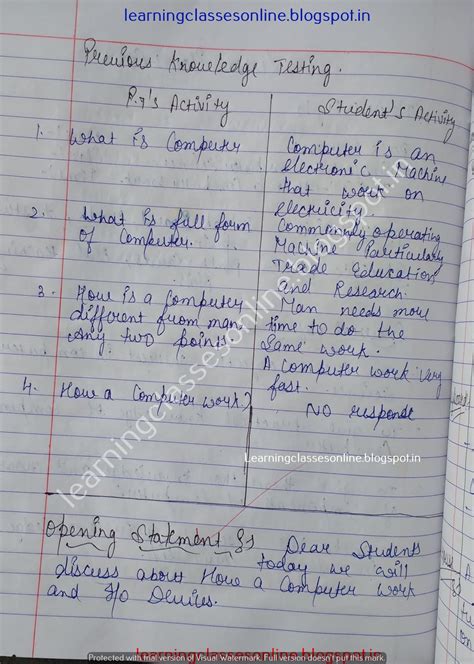 learningclassesonline.blogspot.in
Previous Knowledge Testing.
P.T's Activity
Student's Activity
1. What is Computer
Computer is an
electronic Machine
that work on
electricity
2. What is full form
of Computer.
Commonly operating
Machine Particularly
Trade Education
and Research
3. How is a computer
different from man
any two points.
Man needs more
time to do the
same work.
A computer work very
fast.
4. How a Computer work?
No response
learningclassesonline.blogspot.in
Learningclassesonline.blogspot.in
Opening Statement :- Dear Students
today we will
discuss about How a Computer work
and I/o Devices.
Protected with trial version of Visual Watermark. Full version doesn't put this mark.
learningclassesonline.blogspot.in